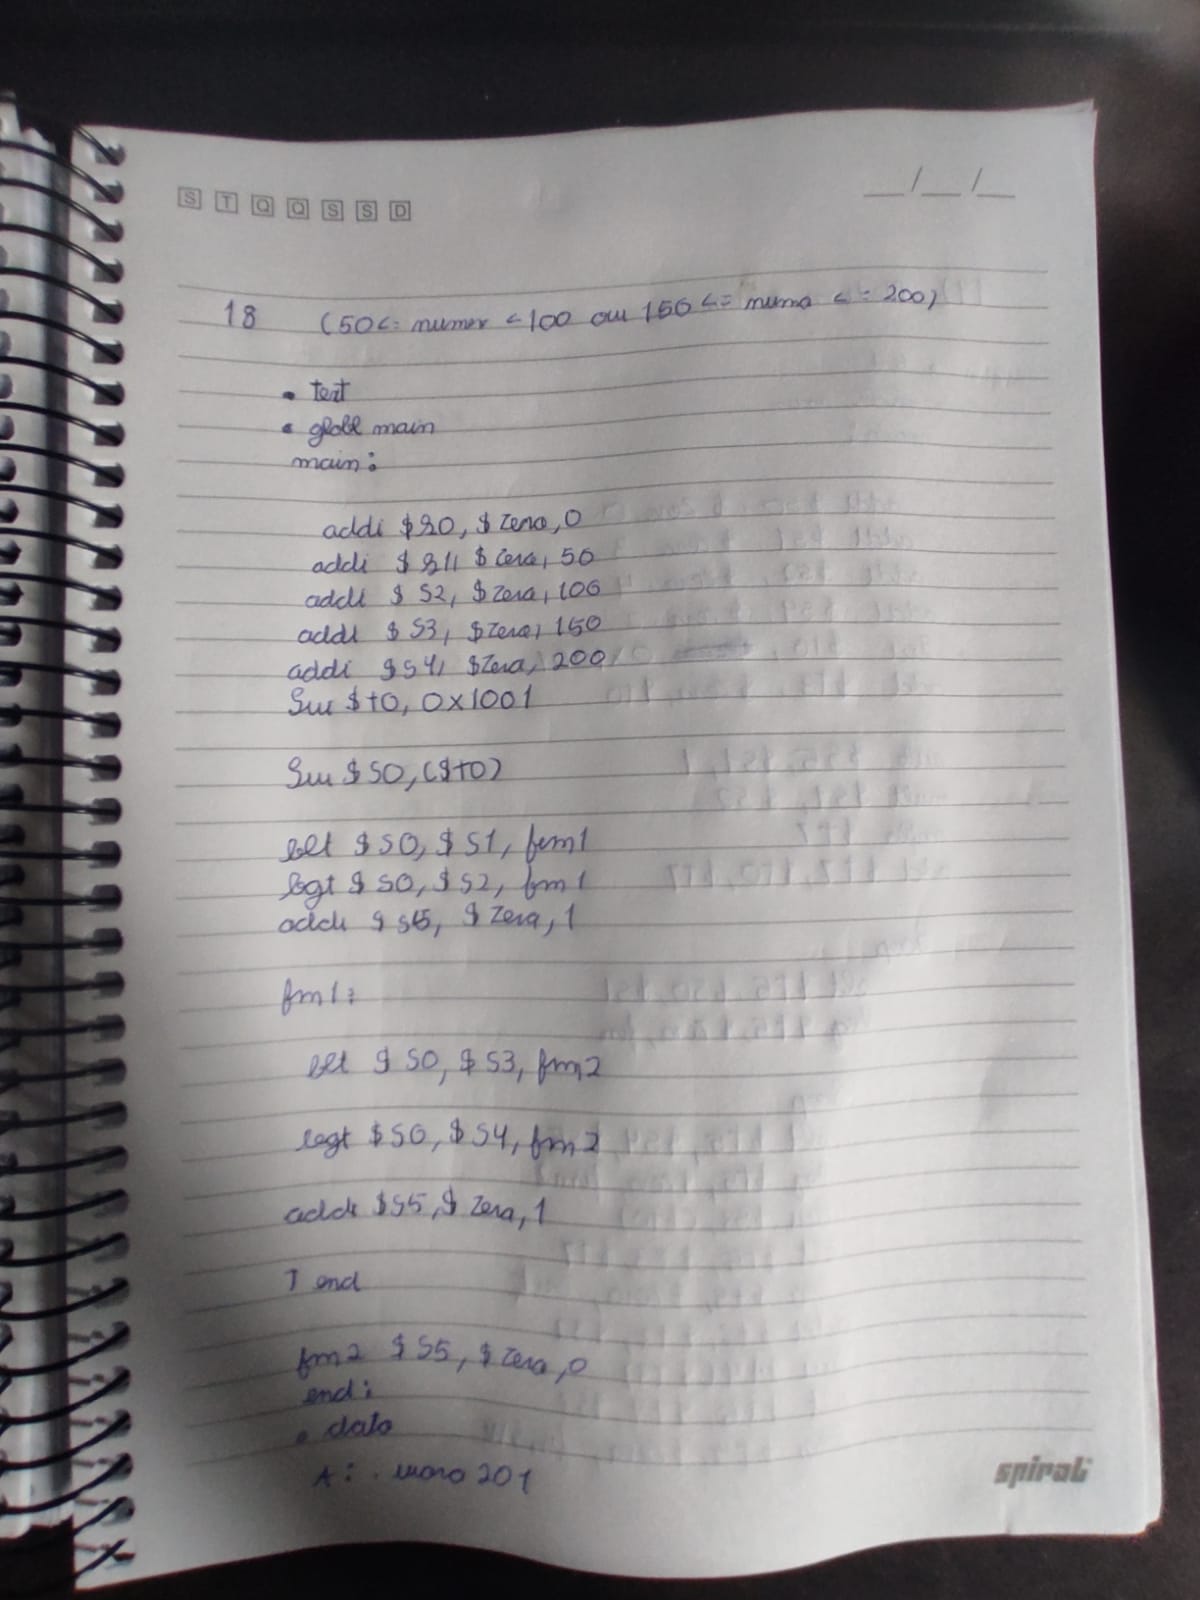 S T Q Q S S D
__/__/__
18 (50<= numer <100 ou 150 <= numa <= 200)
. text
. globl main
main:
addi $s0, $zero, 0
addi $s1, $zero, 50
addi $s2, $zero, 100
addi $s3, $zero, 150
addi $s4, $zero, 200
lui $t0, 0x1001
lw $s0, ($t0)
blt $s0, $s1, fim1
bgt $s0, $s2, fim1
addi $s5, $zero, 1
fim1:
blt $s0, $s3, fim2
bgt $s0, $s4, fim2
addi $s5, $zero, 1
J end
fim2 $s5, $zero, 0
end:
. data
A: . word 201
spiral